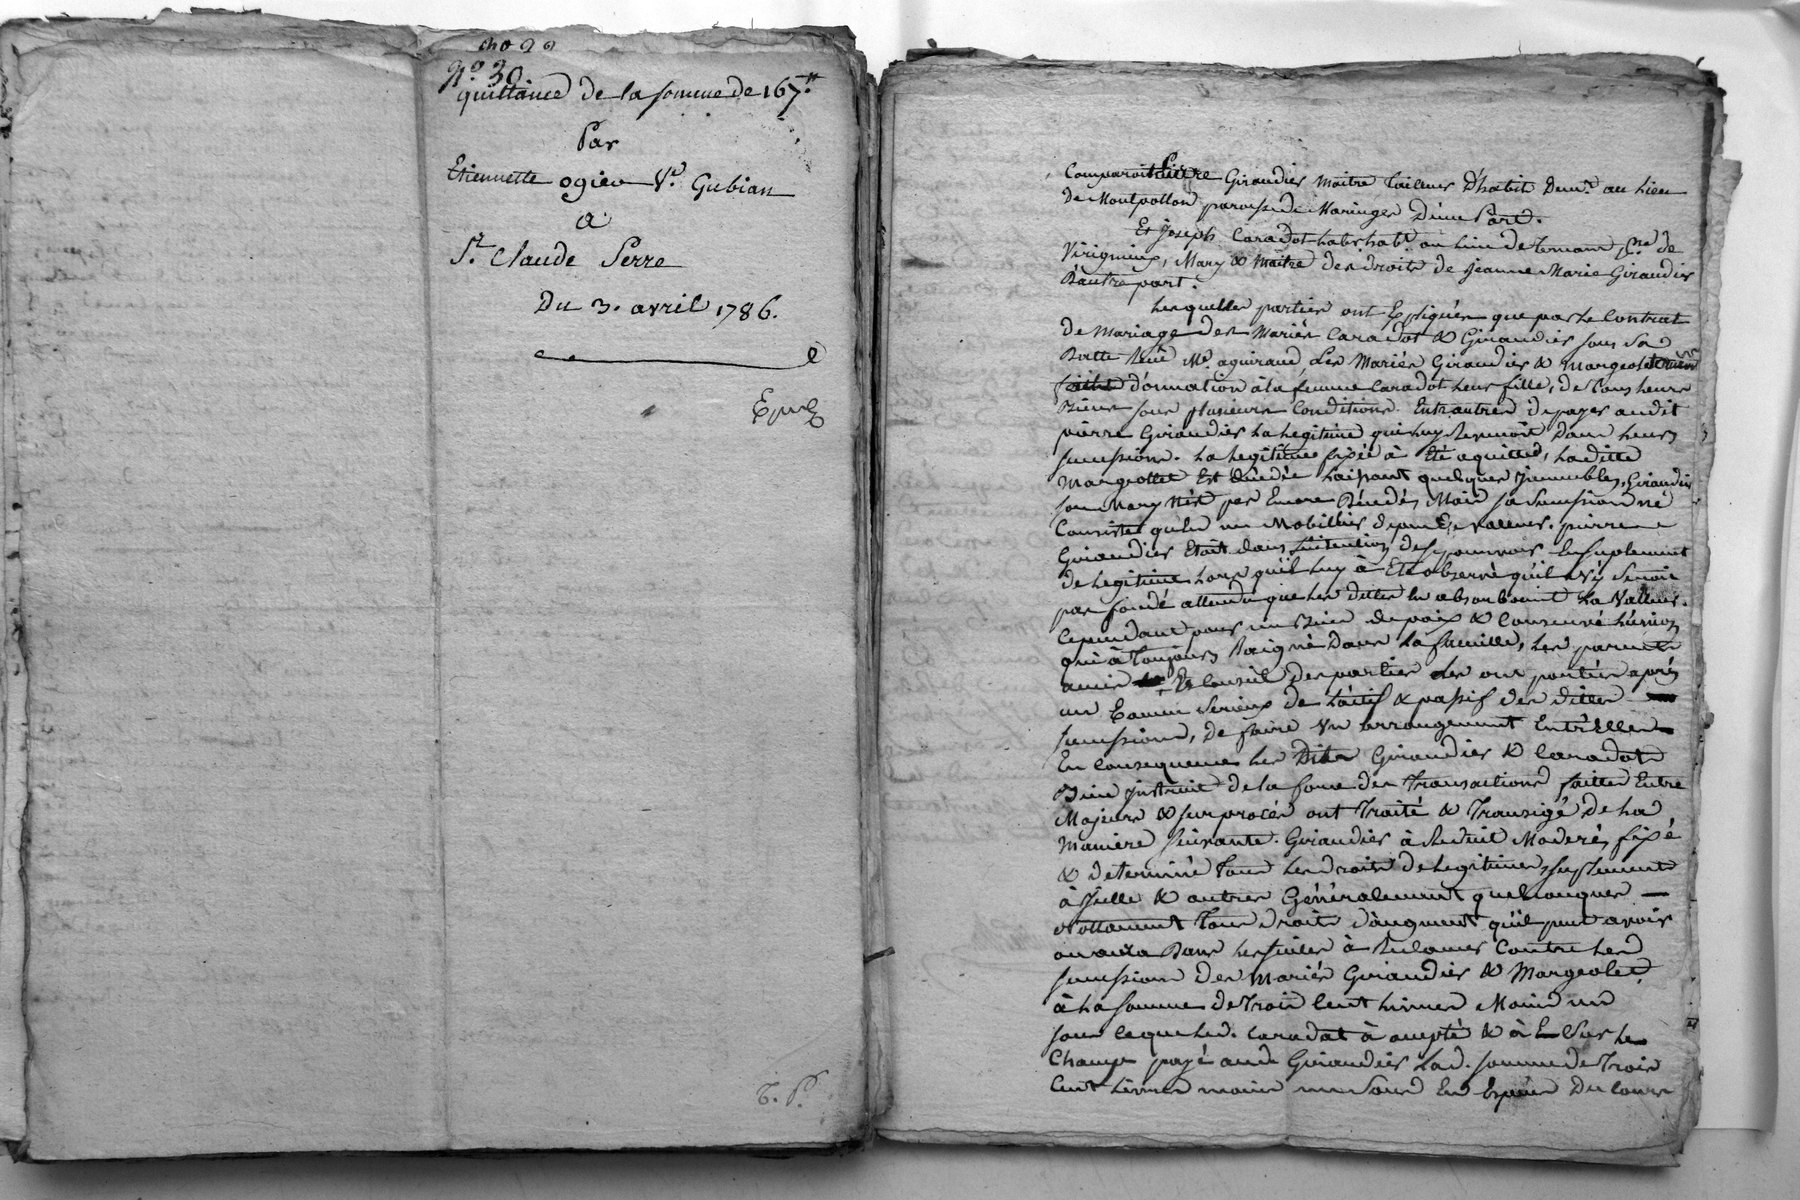 no 29
N.° 30
quittance de la somme de 167.#
Par
Etiennette ogier V.e Gubian
a
S.r Claude Serre
Du 3. avril 1786.
Comparoit Pierre Giraudier Maitre Tailleur D'habit Dem.t au lieu
de Montpollon paroisse de Maringes D'une Part.
Et Joseph Caradot hab.t au lieu de p.sse de
Virigneux, Mary & Maitre des droits de Jeanne Marie Giraudier
D'autre part.
Lesquelles parties ont Expliqués que par le Contrat
de Mariage des Mariés Caradot & Giraudier sous Sa
Datte Reçu M.e aguiraud, Les Mariés Giraudier & Margeolet
faitte d'onnation à la femme Caradot leur fille, de Tous leurs
Biens sous plusieurs Conditions. Entr'autres de payer audit
pierre Giraudier La legitime qui luy Revenoit Dans leurs
sucessions. La legitime fixée à Eté aquitted, Laditte
Margeollet Est décédée Laissant quelques Jmmeubles, Giraudier
son Mary N'est pas Encore Décédés, Mais sa Sucession né
Consiste qu'en un Mobillier de peu de valleur. pierre
Giraudier Etoit dans l'intention de se pourvoir En suplement
de legitime Lors qu'il luy à Eté observé qu'il N'y Seroit
pas fondé attendu que les dettes En absorboient La Valleur.
Cependant pour un Bien de paix & Conserver L'union
qui à Toujours Raigné Dans la famille, les parents
amis Et Conseil des parties les ont portées après
un Examen Serieux de L'actif & passif des dittes
sucessions, de faire Un arrangement Entr'Elles
En Consequence Les Dits Giraudier & Caradot
Bien Jnstruit de la force des Transactions faittes Entre
Majeurs & sur procès ont Traité & Transigé de la
Maniere Suivante. Giraudier à Reduit Moderé, fixé
& determiné Tous les droits de legitimes, suplement
à Jcelle & autres Généralement quelconques
Nottamment Tous droits d'augment qu'il peut avoir
Dans les suites à Reclamer Contre les
sucessions des Mariés Giraudier & Margeolet
à La somme de Trois Cent livres Moins un
sous Ce que led. Caradot à accepté & à Sur le
Champ payé aud. Giraudier Lad. somme de Trois
Cent livres moins un Sous En Espèces Du Cours